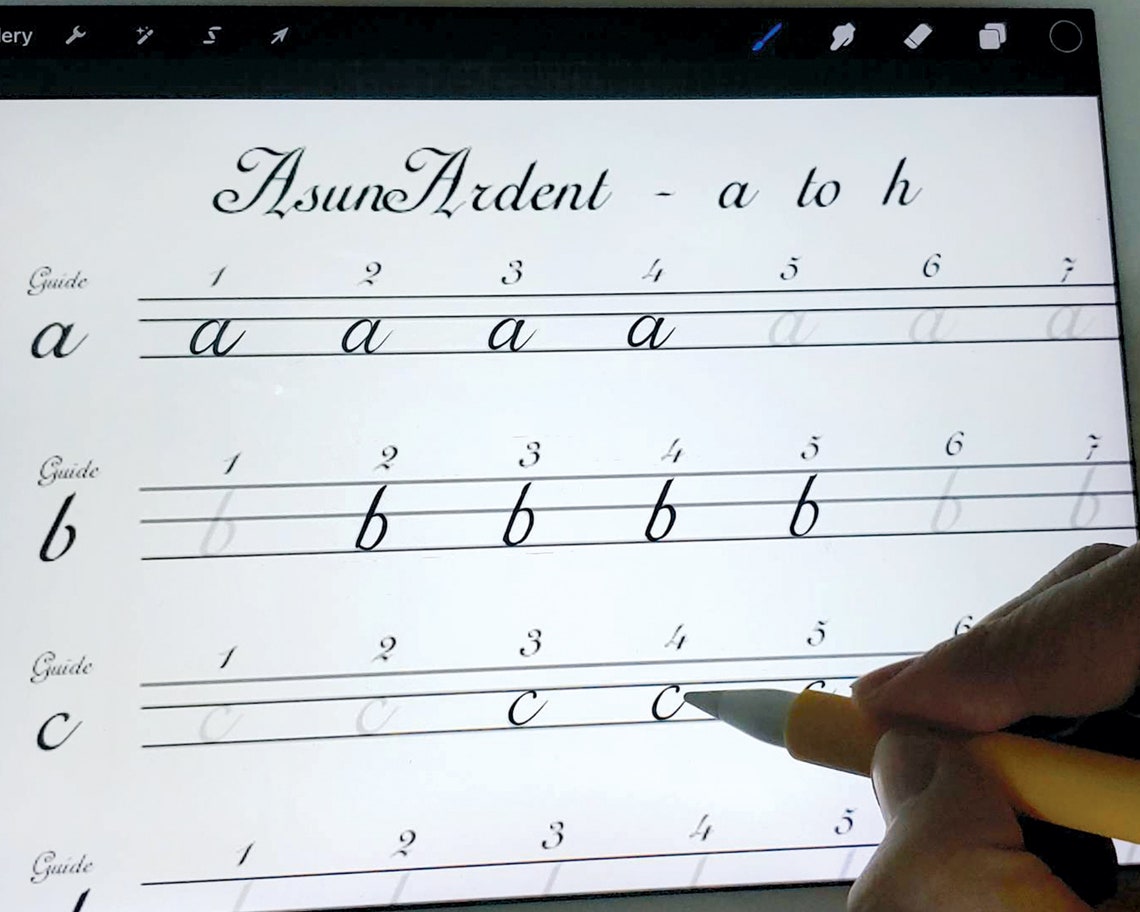 lery
AsunArdent - a to h
Guide 1 2 3 4 5 6 7
a a a a a a a a
Guide 1 2 3 4 5 6 7
b b b b b b b b
Guide 1 2 3 4 5 6
c c c c c c
Guide 1 2 3 4 5